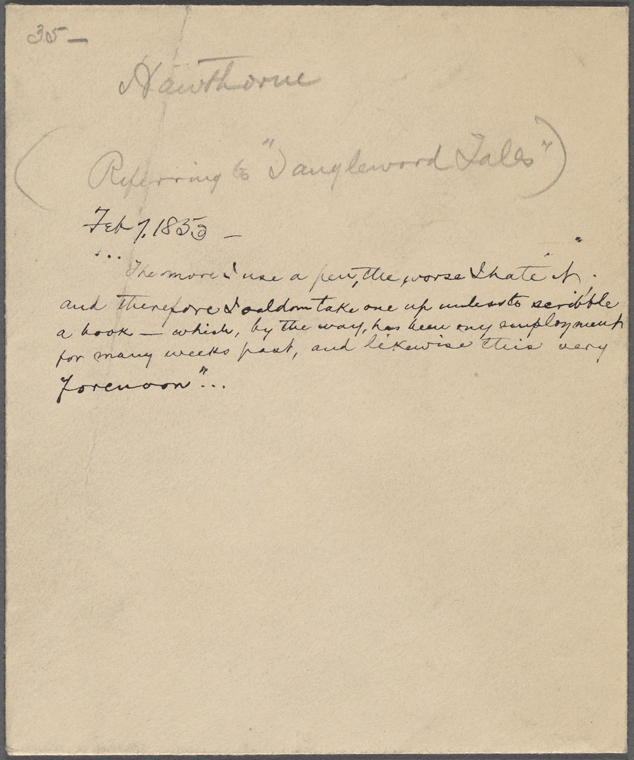 35—
Hawthorne
(Referring to "Tanglewood Tales")
Feb 7, 1853 —
... "The more I use a pen, the worse I hate it,
and therefore I seldom take one up unless to scribble
a book — which, by the way, has been my employment
for many weeks past, and likewise this very
forenoon"...